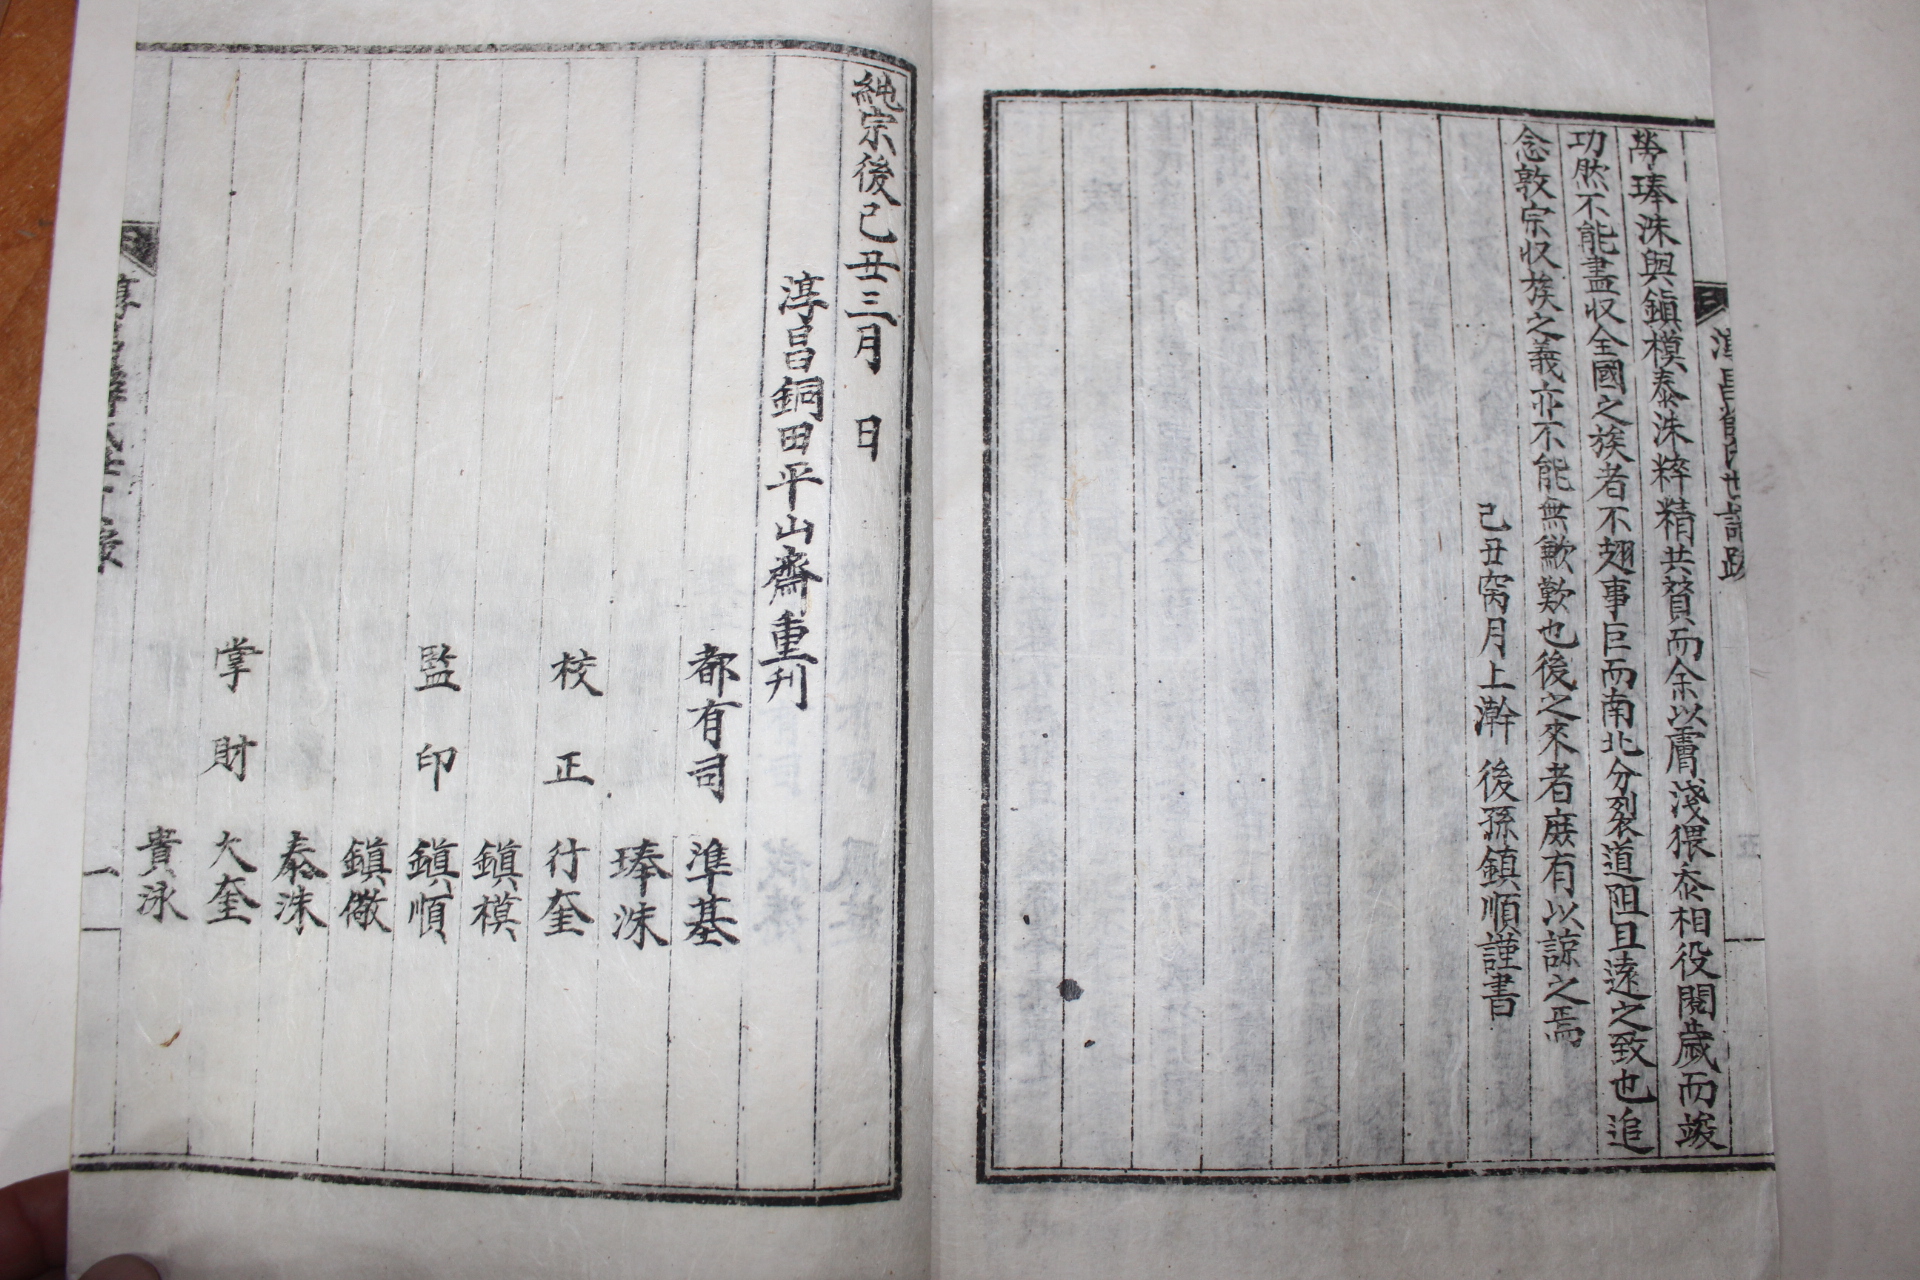 淳昌薛氏世譜跋
勞琫洙與鎭模泰洙粹精共賛而余以膚淺猥忝相役閱歲而竣
功然不能盡収全國之族者不翅事巨而南北分裂道阻且遠之致也追
念敦宗収族之義亦不能無歉歎也後之來者庶有以諒之焉
己丑窉月上澣 後孫鎭順謹書
純宗後己丑三月 日
淳昌銅田平山齋重刊
都有司 準基
琫洙
校正 行奎
鎭模
監印 鎭順
鎭儆
泰洙
掌財 大奎
貴泳
一